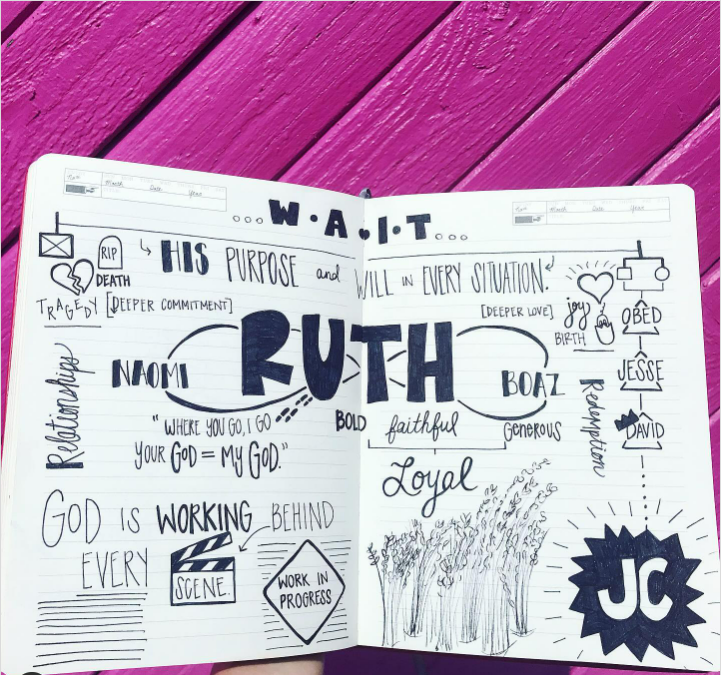 Month Date Year
Month Date Year
...W.A.I.T...
HIS PURPOSE and WILL IN EVERY SITUATION.
RIP
DEATH
TRAGEDY [DEEPER COMMITMENT]
[DEEPER LOVE]
joy
BIRTH
OBED
RUTH
NAOMI
BOAZ
JESSE
Relationships
Redemption
"WHERE YOU GO, I GO
YOUR GOD = MY GOD."
BOLD faithful GENEROUS
DAVID
Loyal
GOD IS WORKING BEHIND
EVERY SCENE.
WORK IN
PROGRESS
JC